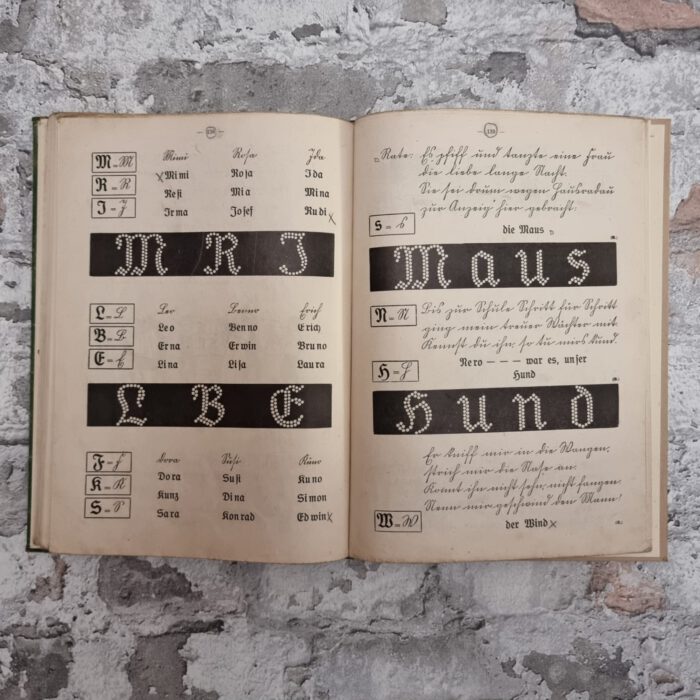 138
M = M Mimi Rosa Ida
R = R Mimi Rosa Ida
Resi Mia Mina
I = I Irma Josef Rudi
M R I
L = L Leo Benno Erich
B = B Leo Benno Erich
Erna Erwin Bruno
E = E Lina Lisa Laura
L B E
F = F Dora Susi Kuno
K = K Dora Susi Kuno
Kunz Dina Simon
S = S Sara Konrad Edwin
139
Rate: Es pfiff und tanzte eine Frau
die liebe lange Nacht.
Sie sei drum wegen Hausradau
zur Anzeig' hier gebracht:
s = s
die Maus
Maus
N = N Bis zur Schule Schritt für Schritt
ging mein treuer Wächter mit.
Kennst du ihn, so tu mirs kund.
H = H Nero — — — war es, unser
Hund
Hund
Er kniff mir in die Wangen,
strich mir die Nase an.
Komt ihn nicht sehn, nicht fangen.
Nenn mir geschwind den Mann!
W = W der Wind